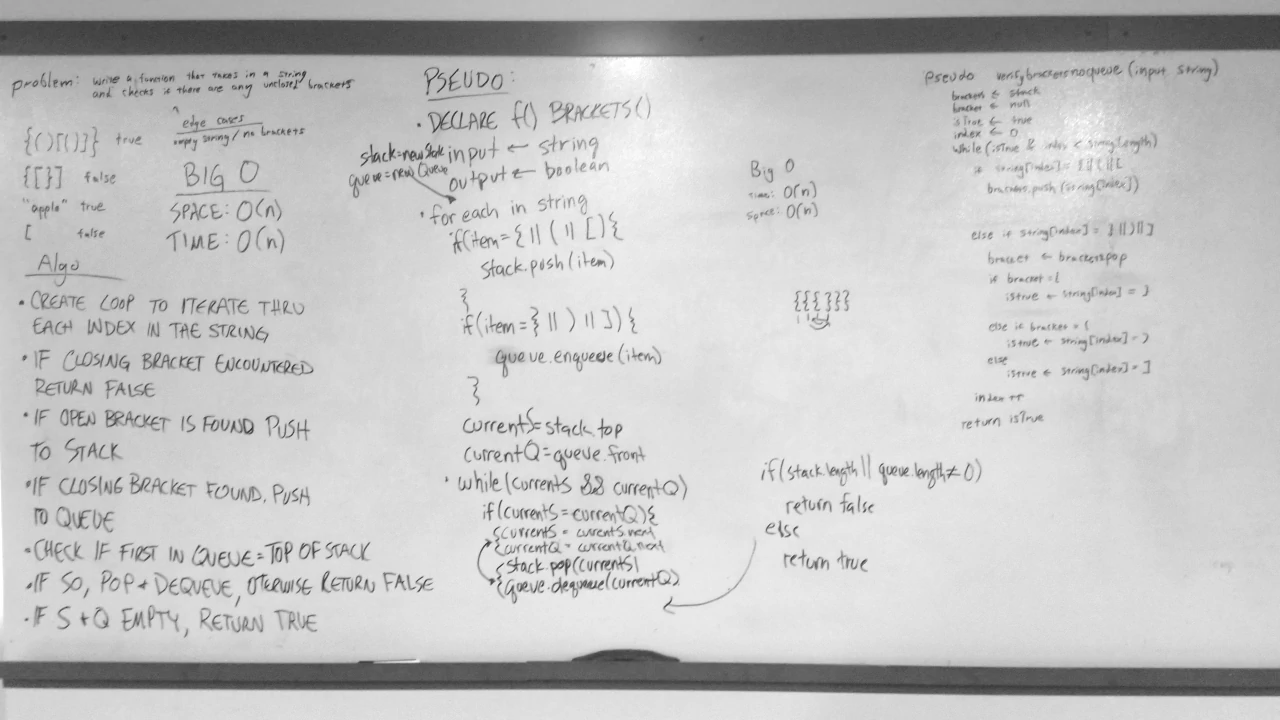 problem: write a function that takes in a string
and checks if there are any unclosed brackets
^
edge cases
empty string / no brackets
{()[()]} true
{[}] false
"apple" true
[ false
BIG O
SPACE: O(n)
TIME: O(n)
Algo
• CREATE LOOP TO ITERATE THRU
EACH INDEX IN THE STRING
• IF CLOSING BRACKET ENCOUNTERED
RETURN FALSE
• IF OPEN BRACKET IS FOUND PUSH
TO STACK
• IF CLOSING BRACKET FOUND, PUSH
TO QUEUE
• CHECK IF FIRST IN QUEUE = TOP OF STACK
• IF SO, POP + DEQUEUE, OTERWISE RETURN FALSE
• IF S + Q EMPTY, RETURN TRUE
PSEUDO:
• DECLARE f() BRACKETS()
input ← string
output ← boolean
stack = new Stack
queue = new Queue
• for each in string
if(item = { || ( || [) {
stack.push(item)
}
if(item = } || ) || ]) {
queue.enqueue(item)
}
currentS = stack.top
currentQ = queue.front
• while(currentS && currentQ)
if(currentS = currentQ){
{currentS = currentS.next
{currentQ = currentQ.next
{stack.pop(currentS)
{queue.dequeue(currentQ)
if(stack.length || queue.length ≠ 0)
return false
else
return true
Big O
Time: O(n)
Space: O(n)
{{{}}}
Pseudo verifybracketsnoqueue (input string)
brackets ← stack
bracket ← null
isTrue ← true
index ← 0
while (isTrue & index < string.length)
if string[index] = { || ( || [
brackets.push (string[index])
else if string[index] = } || ) || ]
bracket ← brackets.pop
if bracket = {
istrue ← string[index] = }
else if bracket = (
istrue ← string[index] = )
else
istrue ← string[index] = ]
index ++
return isTrue